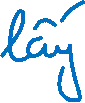 lấy